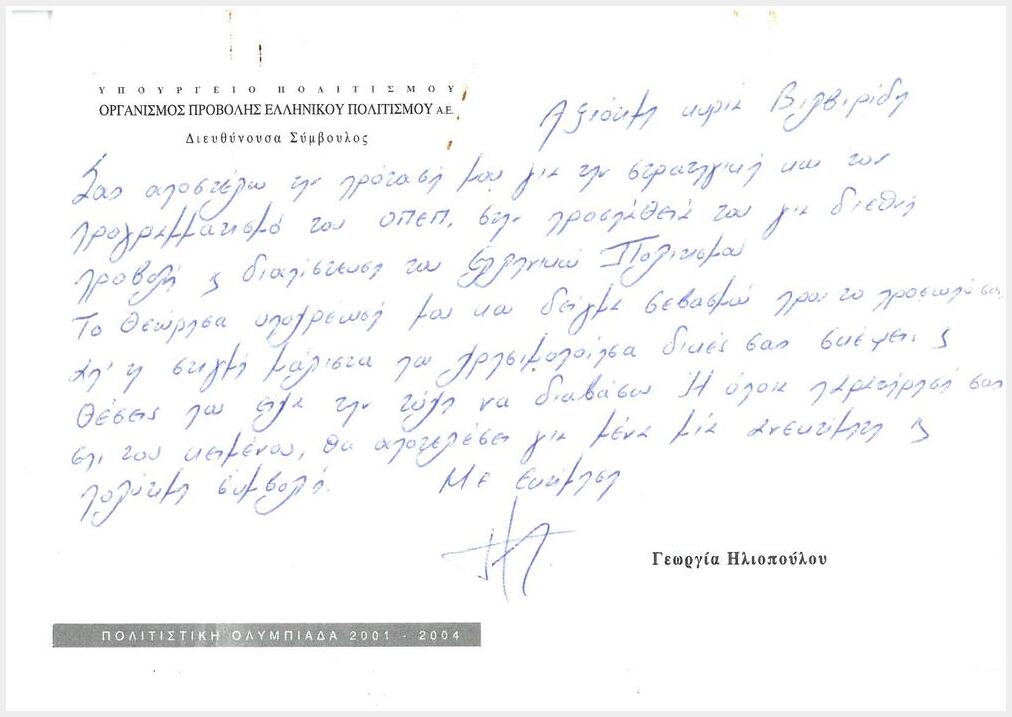 ΥΠΟΥΡΓΕΙΟ ΠΟΛΙΤΙΣΜΟΥ
ΟΡΓΑΝΙΣΜΟΣ ΠΡΟΒΟΛΗΣ ΕΛΛΗΝΙΚΟΥ ΠΟΛΙΤΙΣΜΟΥ Α.Ε.
Διευθύνουσα Σύμβουλος
Αξιότιμη κυρία
Σας αποστέλω την πρότασή μου για την στρατηγική και τον
προγραμματισμό του ΟΠΕΠ, στην προσπάθειά του για διεθνή
προβολή ς διαπίστωση του Ελληνικού Πολιτισμού
Το θεώρησα υποχρέωσή μου και δείγμα σεβασμού προς το πρόσωπό σας
απ' τη στιγμή μάλιστα που χρησιμοποίησα δικές σας σκέψεις ς
θέσεις που είχα την τύχη να διαβάσω Η όποια παρατήρησή σας
επι του κειμένου, θα αποτελέσει για μένα μία ανεκτίμητη ς
πολύτιμη συμβολή. Με εκτίμηση
Γεωργία Ηλιοπούλου
ΠΟΛΙΤΙΣΤΙΚΗ ΟΛΥΜΠΙΑΔΑ 2001 - 2004